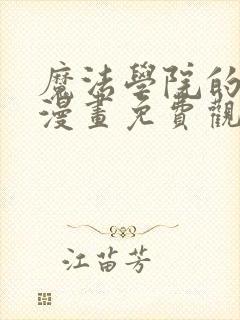 魔法學院的
漫畫免費觀
江苗芳